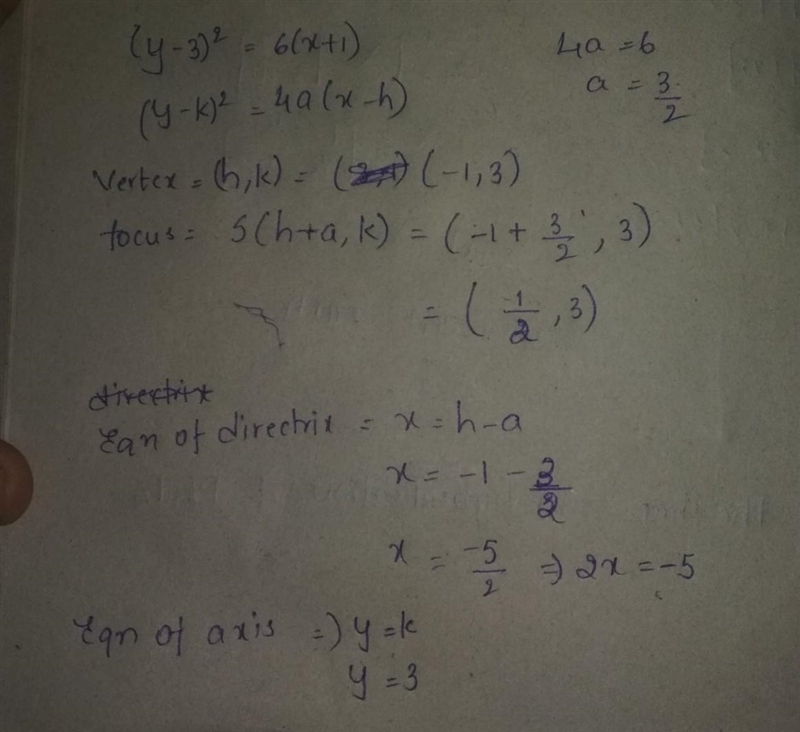 (y-3)² = 6(x+1) 4a = 6
(y-k)² = 4a(x-h) a = 3/2
Vertex = (h,k) = (-1,3)
focus = S(h+a, k) = (-1 + 3/2, 3)
= (1/2, 3)
directrix
Eqn of directrix = x = h-a
x = -1 - 3/2
x = -5/2 => 2x = -5
Eqn of axis => y = k
y = 3